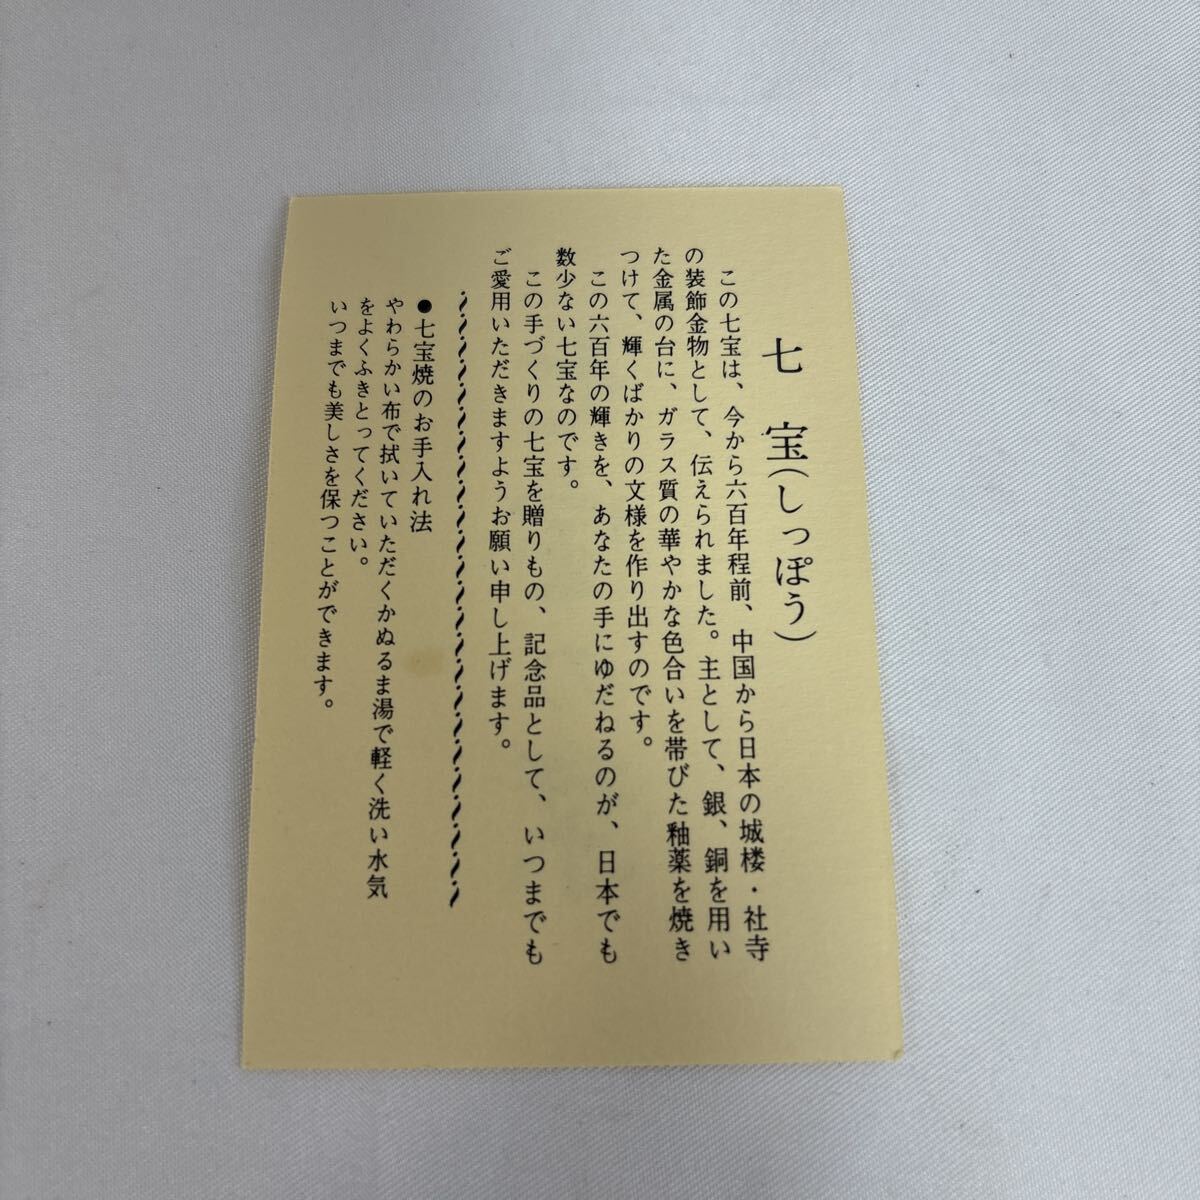 七宝(しっぽう)
この七宝は、今から六百年程前、中国から日本の城楼・社寺
の装飾金物として、伝えられました。主として、銀、銅を用い
た金属の台に、ガラス質の華やかな色合いを帯びた釉薬を焼き
つけて、輝くばかりの文様を作り出すのです。
この六百年の輝きを、あなたの手にゆだねるのが、日本でも
数少ない七宝なのです。
この手づくりの七宝を贈りもの、記念品として、いつまでも
ご愛用いただきますようお願い申し上げます。
●七宝焼のお手入れ法
やわらかい布で拭いていただくかぬるま湯で軽く洗い水気
をよくふきとってください。
いつまでも美しさを保つことができます。